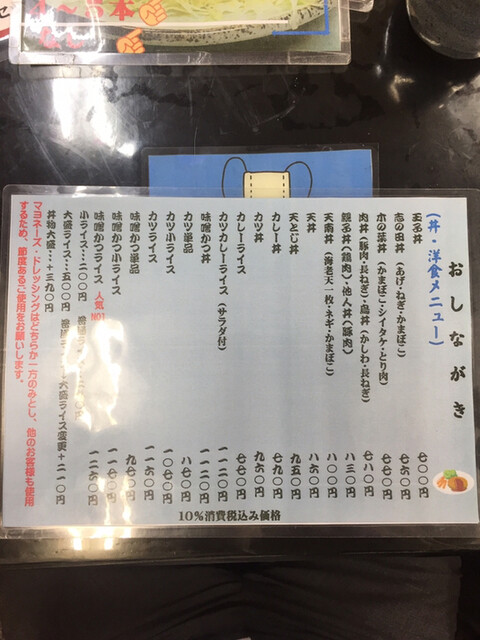 おしながき
（丼・洋食メニュー）
玉子丼 七〇〇円
志の田丼（あげ・ねぎ・かまぼこ） 七六〇円
木の葉丼（かまぼこ・シイタケ・とり肉） 七七〇円
肉丼（豚肉・長ねぎ）・鳥丼（かしわ・長ねぎ） 七八〇円
親子丼（鶏肉）・他人丼（豚肉） 八三〇円
天南丼（海老天一枚・ネギ・かまぼこ） 八〇〇円
天丼 八六〇円
天とじ丼 九五〇円
カレー丼 七九〇円
カツ丼 九六〇円
カレーライス 七七〇円
カツカレーライス（サラダ付） 一一二〇円
味噌かつ丼 一一二〇円
カツ単品 八七〇円
カツ小ライス 一一六〇円
カツライス 一一〇〇円
味噌かつ単品 九七〇円
味噌かつ小ライス 一一七〇円
味噌かつライス 人気NO1 一二六〇円
小ライス…二〇〇円
大盛ライス…五〇〇円 大盛ライス変更＋二一〇円
丼物大盛…＋三九〇円
マヨネーズ・ドレッシングはどちらか一方のみとし、他のお客様も使用
するため、節度あるご使用をお願いします。
10%消費税込み価格